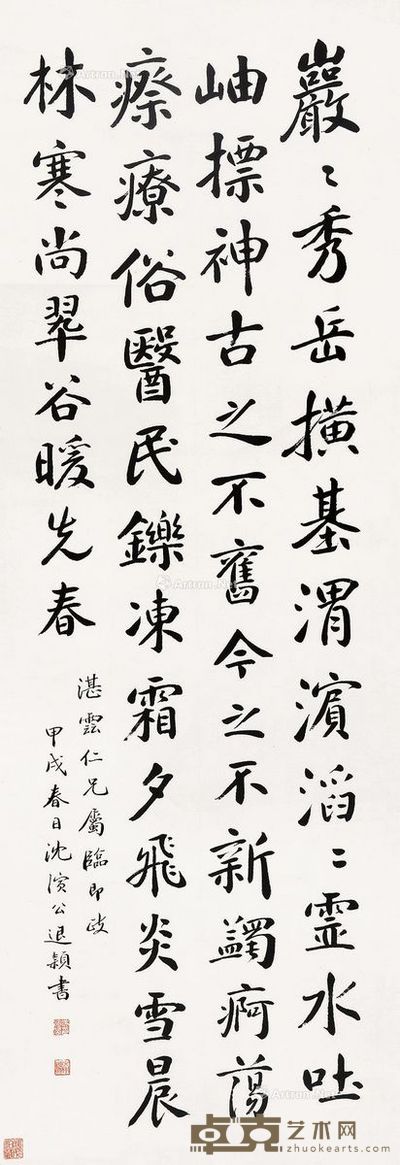 巖〻秀岳撗基渭濱滔〻霊水吐
岫摽神古之不舊今之不新蠲痾蕩
瘵療俗醫民鑠凍霜夕飛炎雪晨
林寒尚翠谷暖先春
湛雲仁兄屬臨即政
甲戌春日沈演公退穎書
卓克艺术网
zhuokearts.com